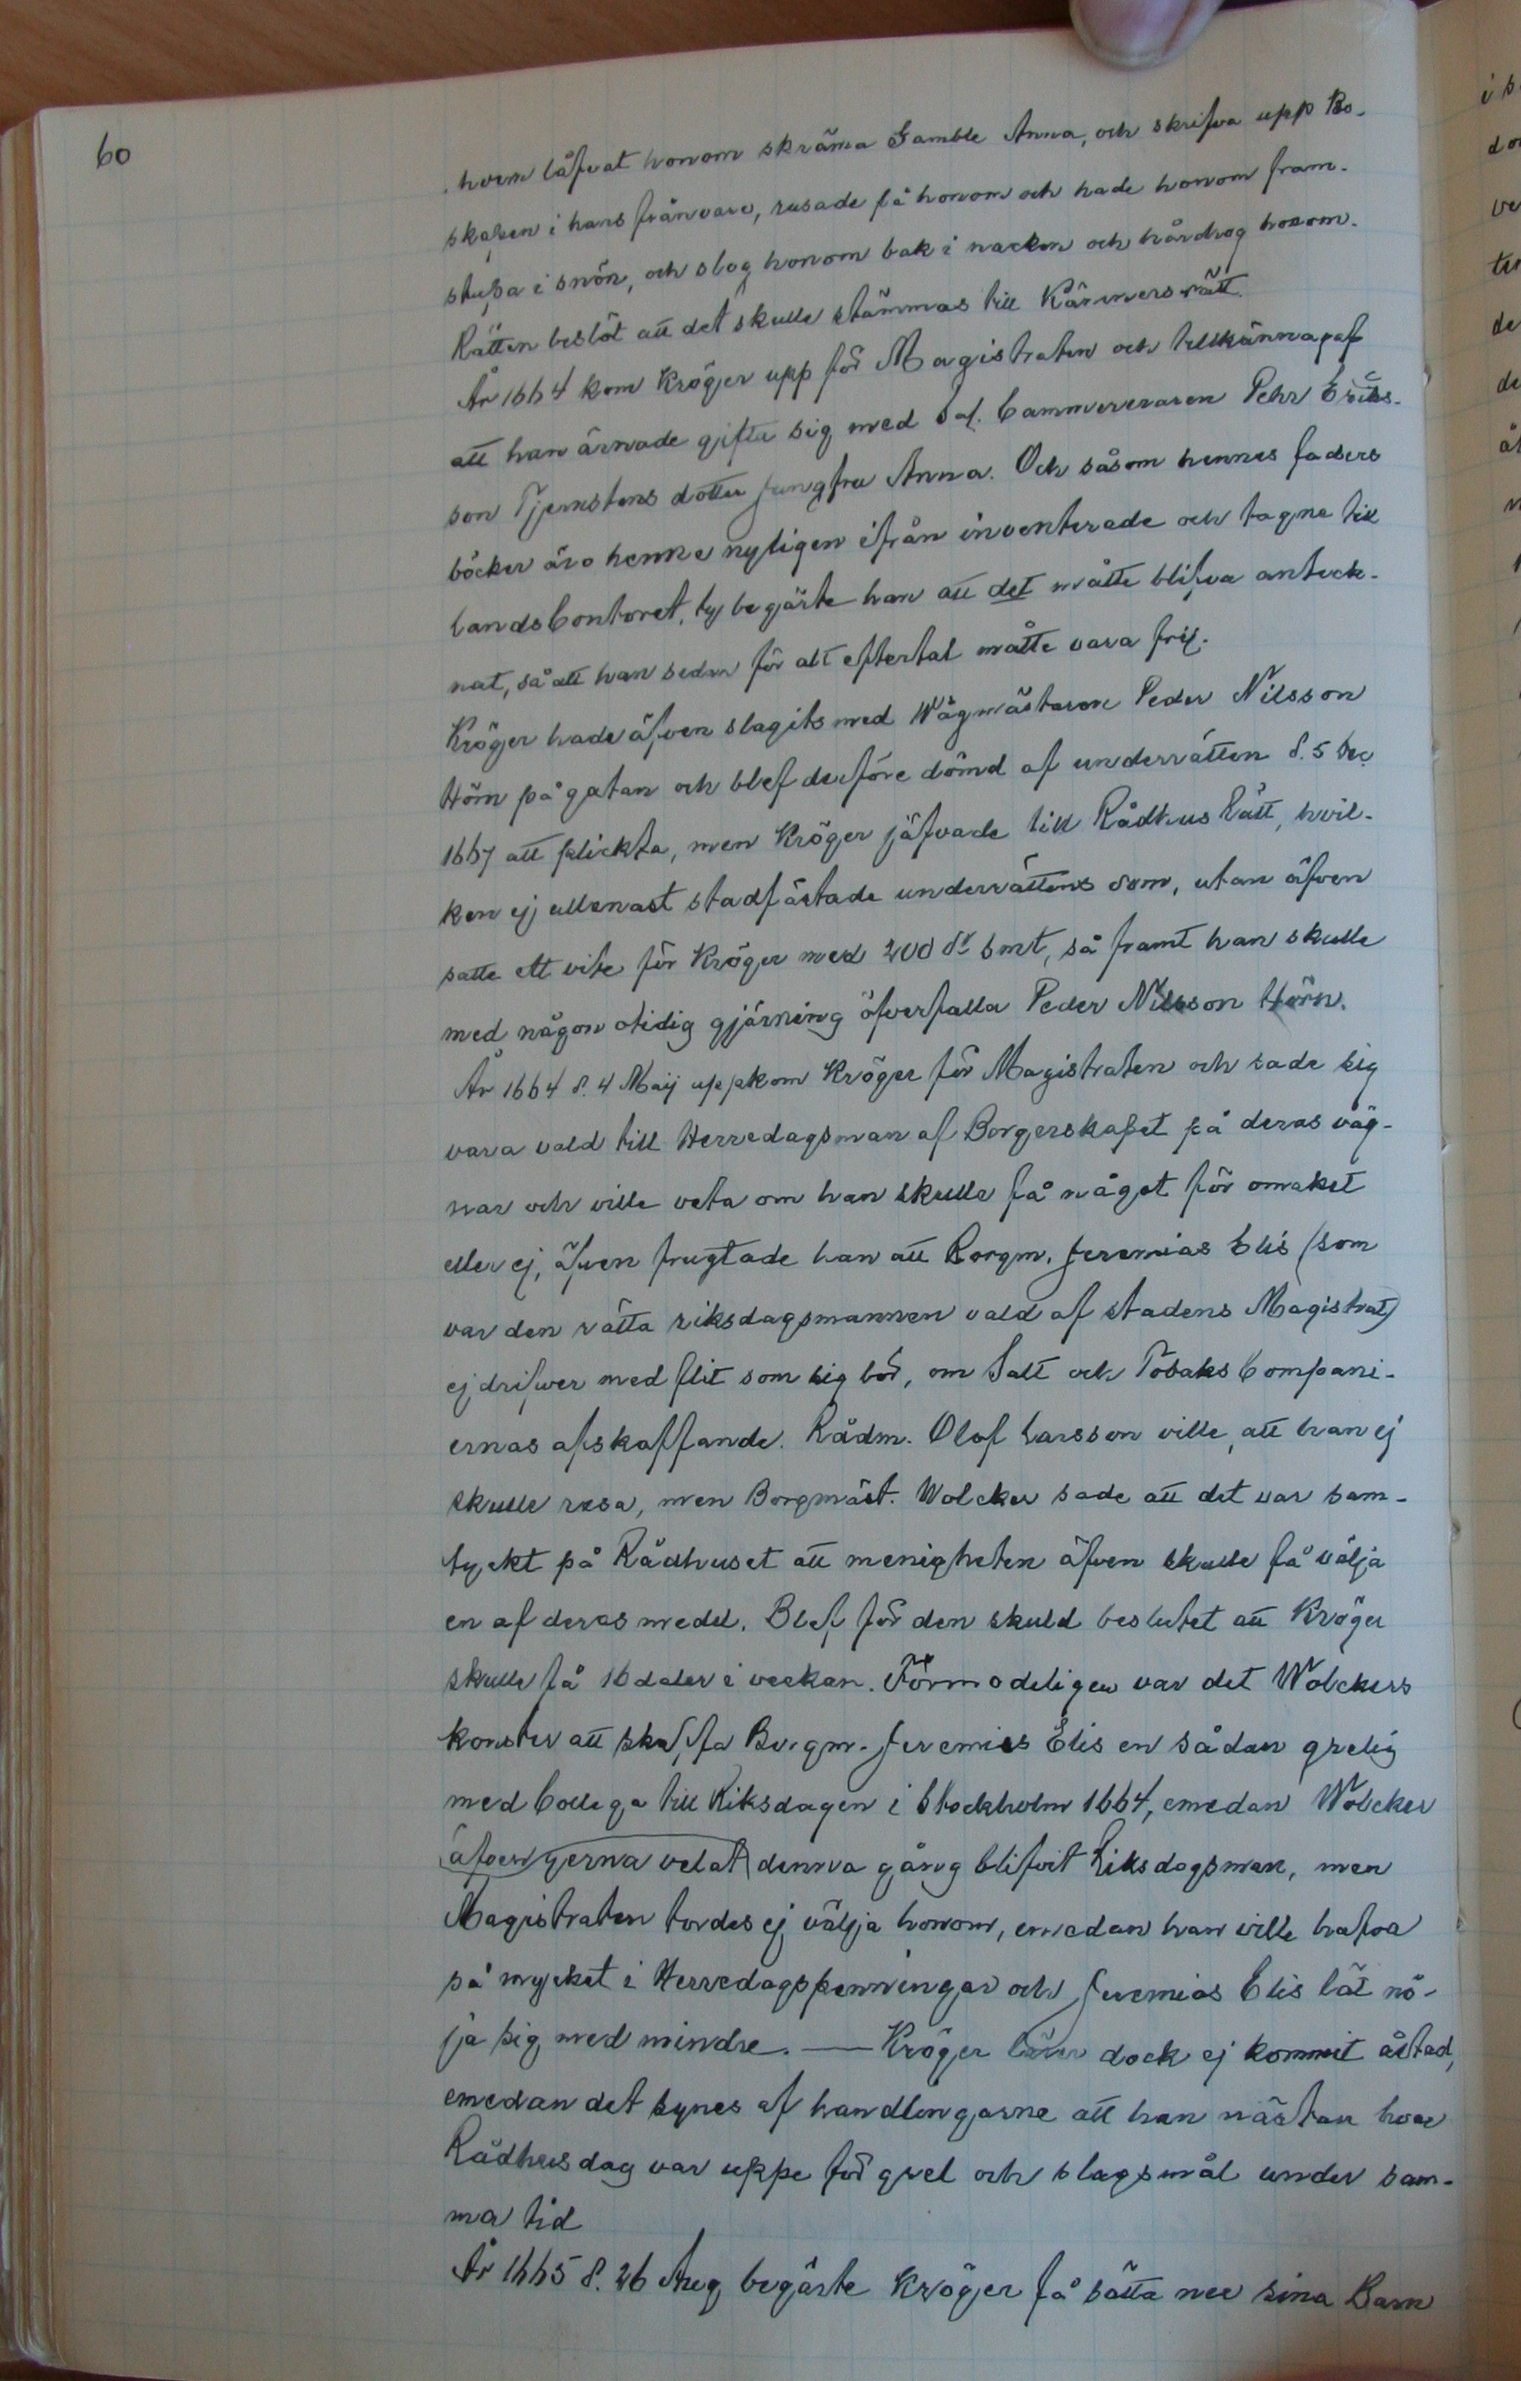 60
hvem låfvat honom skräma Gamble Anna, och skrifva upp Bo-
skapen i hans frånvaro, rusade på honom och hade honom fram-
stupa i snön, och slog honom bak i nacken och hårdrog honom.
Rätten beslöt att det skulle stämmas till Kämners rätt.
År 1664 kom Kröger upp för Magistraten och tillkännagaf
att han ärnade gifta sig med Sal. Cammereraren Pehr Eriks-
son Tjernstens dotter Jungfru Anna. Och såsom hennes faders
böcker äro henne nyligen ifrån inventerade och tagne till
Lands Contoret, ty begärte han att det måtte blifva anteck-
nat, så att han sedan för alt eftertal måtte vara frij.
Kröger hade äfven slagits med Vågmästaren Peder Nilsson
Hörn på gatan och blef derföre dömd af underrätten d. 5 Dec
1667 att plickta, men Kröger jäfvade till Rådhus Rätt, hvil-
ken ej allenast stadfästade underrättens dom, utan äfven
satte ett vite för Kröger med 200 dr smt, så framt han skulle
med någon otidig gjärning öfverfalla Peder Nilsson Hörn.
År 1664 d. 4 Maij uppkom Kröger för Magistraten och sade sig
vara vald till Herredagsman af Borgerskapet på deras väg-
nar och ville veta om han skulle få något för omaket
eller ej, äfven frugtade han att Borgm. Jeremias Elis (som
var den rätta riksdagsmannen vald af stadens Magistrat)
ej drifver med flit som sig bör, om Salt och Tobaks Compani-
ernas afskaffande. Rådm. Olof Larsson ville, att han ej
skulle resa, men Borgmäst. Wolcker sade att det var sam-
tyckt på Rådhuset att menigheten äfven skulle få välja
en af deras medel. Blef för den skuld beslutet att Kröger
skulle få 16 daler i veckan. Förmodeligen var det Wolckers
konster att skaffa Borgm. Jeremias Elis en sådan grelig
med Collega till Riksdagen i Stockholm 1664, emedan Wolcker
äfven gerna velat denna gång blifvit Riksdagsman, men
Magistraten tordes ej välja honom, emedan han ville hafva
så mycket i Herredagspenningar och Jeremias Elis lät nö-
ja sig med mindre. — Kröger lärer dock ej kommit åstad,
emedan det synes af handlingarne att han nästan hvar
Rådhusdag var uppe för grel och slagsmål under sam-
ma tid
År 1665 d. 26 Aug begärte Kröger få sätta ner sina Barn